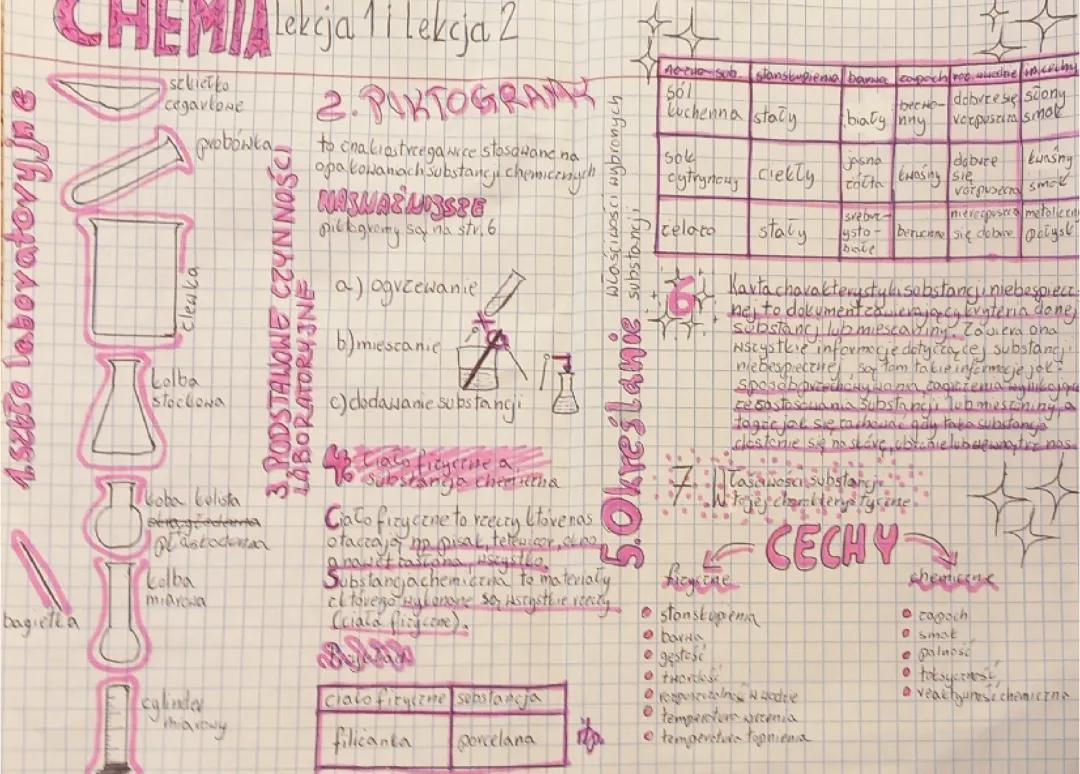 CHEMIA lekcja 1 i lekcja 2
1. szkło laboratoryjne
szkiełko
zegarkowe
probówka
zlewka
kolba
stożkowa
koba kulista
płaskodenna
kolba
miarowa
bagietka
cylinder
miarowy
2. PIKTOGRAMY
to znaki ostrzegawcze stosowane na
opakowaniach substancji chemicznych
NAJWAŻNIEJSZE
piktogramy są na str. 6
3 PODSTAWOWE CZYNNOŚCI
LABORATORYJNE
a) ogrzewanie
b) mieszanie
c) dodawanie substancji
4. Ciało fizyczne a
substancja chemiczna
Ciało fizyczne to rzeczy które nas
otaczają np pisak, telewizor, okno
a nawet tablica, wszystko.
Substancja chemiczna to materiały
z którego wykonane są wszystkie rzeczy
(ciała fizyczne).
ciało fizyczne substancja
filiżanka porcelana
5. Określanie
właściwości wybranych
substancji
nazwa sub. stan skupienia barwa zapach roz. w wodzie in. cechy
sól
kuchenna stały biały bezwo-
nny dobrze się
rozpuszcza słony
smak
sok
cytrynowy ciekły jasno
żółta kwaśny dobrze
się
rozpuszcza kwaśny
smak
żelazo stały srebrz-
ysto-
białe bezwonne nierozpuszcza
się dobrze metaliczny
połysk
6 Karta charakterystyki substancji niebezpiecz-
nej to dokument zawierający kryteria danej
substancj lub mieszaniny. Zawiera ona
wszystkie informacje dotyczącej substancji
niebezpiecznej, są tam takie informacje jak:
sposób przechowywania, zagrożenia wynikające
ze sastosowania substancji lub mieszaniny, a
także jak się zachować gdy taka substancja
dostanie się na skórę, ubranie lub wewnątrz nas.
7 Właściwości substancji
to jej charakterystyczne
CECHY
fizyczne
stan skupienia
barwa
gęstość
twardość
rozpuszczalność w wodzie
temperatura wrzenia
temperatura topnienia
chemiczne
zapach
smak
palność
toksyczność
reaktywność chemiczna